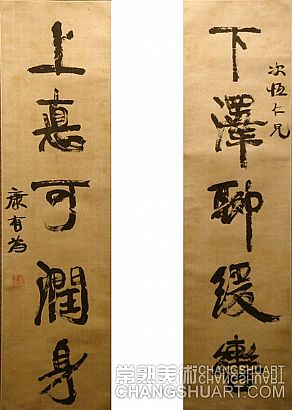 次恆仁兄
下澤聊緩轡
上惪可潤身
康有為
常熟美術 CHANGSHUART
CHANGSHUART.COM